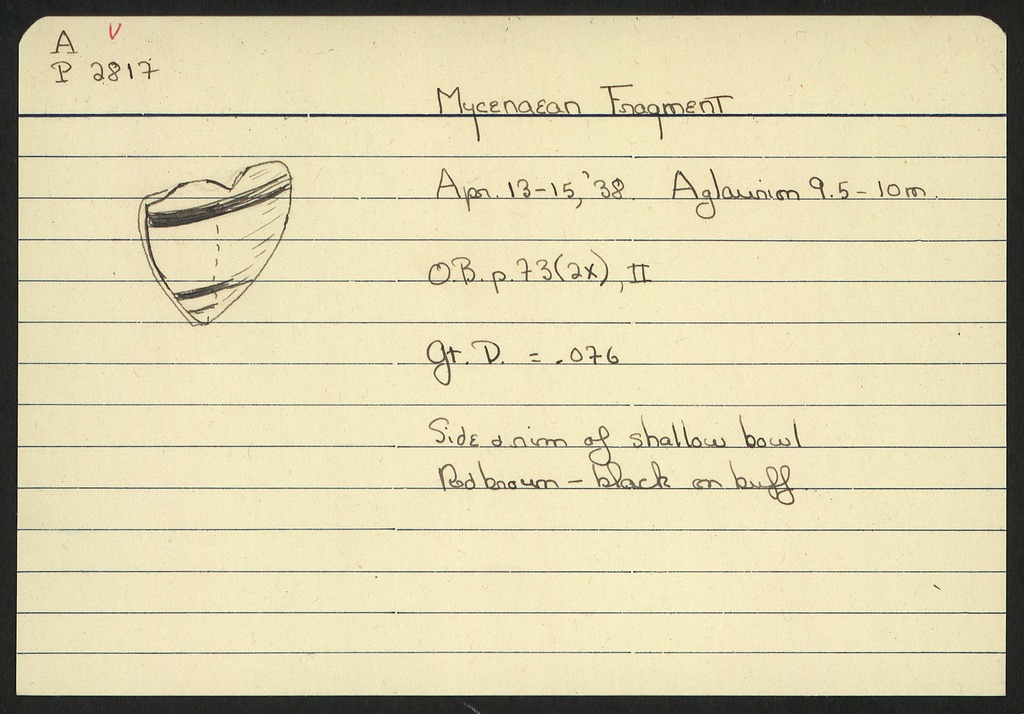 A V
P 2817
Mycenaean Fragment
Apr. 13-15, '38 Aglaurion 9.5-10m.
O.B. p. 73 (2x), II
Gt. D. = .076
Side & rim of shallow bowl
Red brown - black on buff